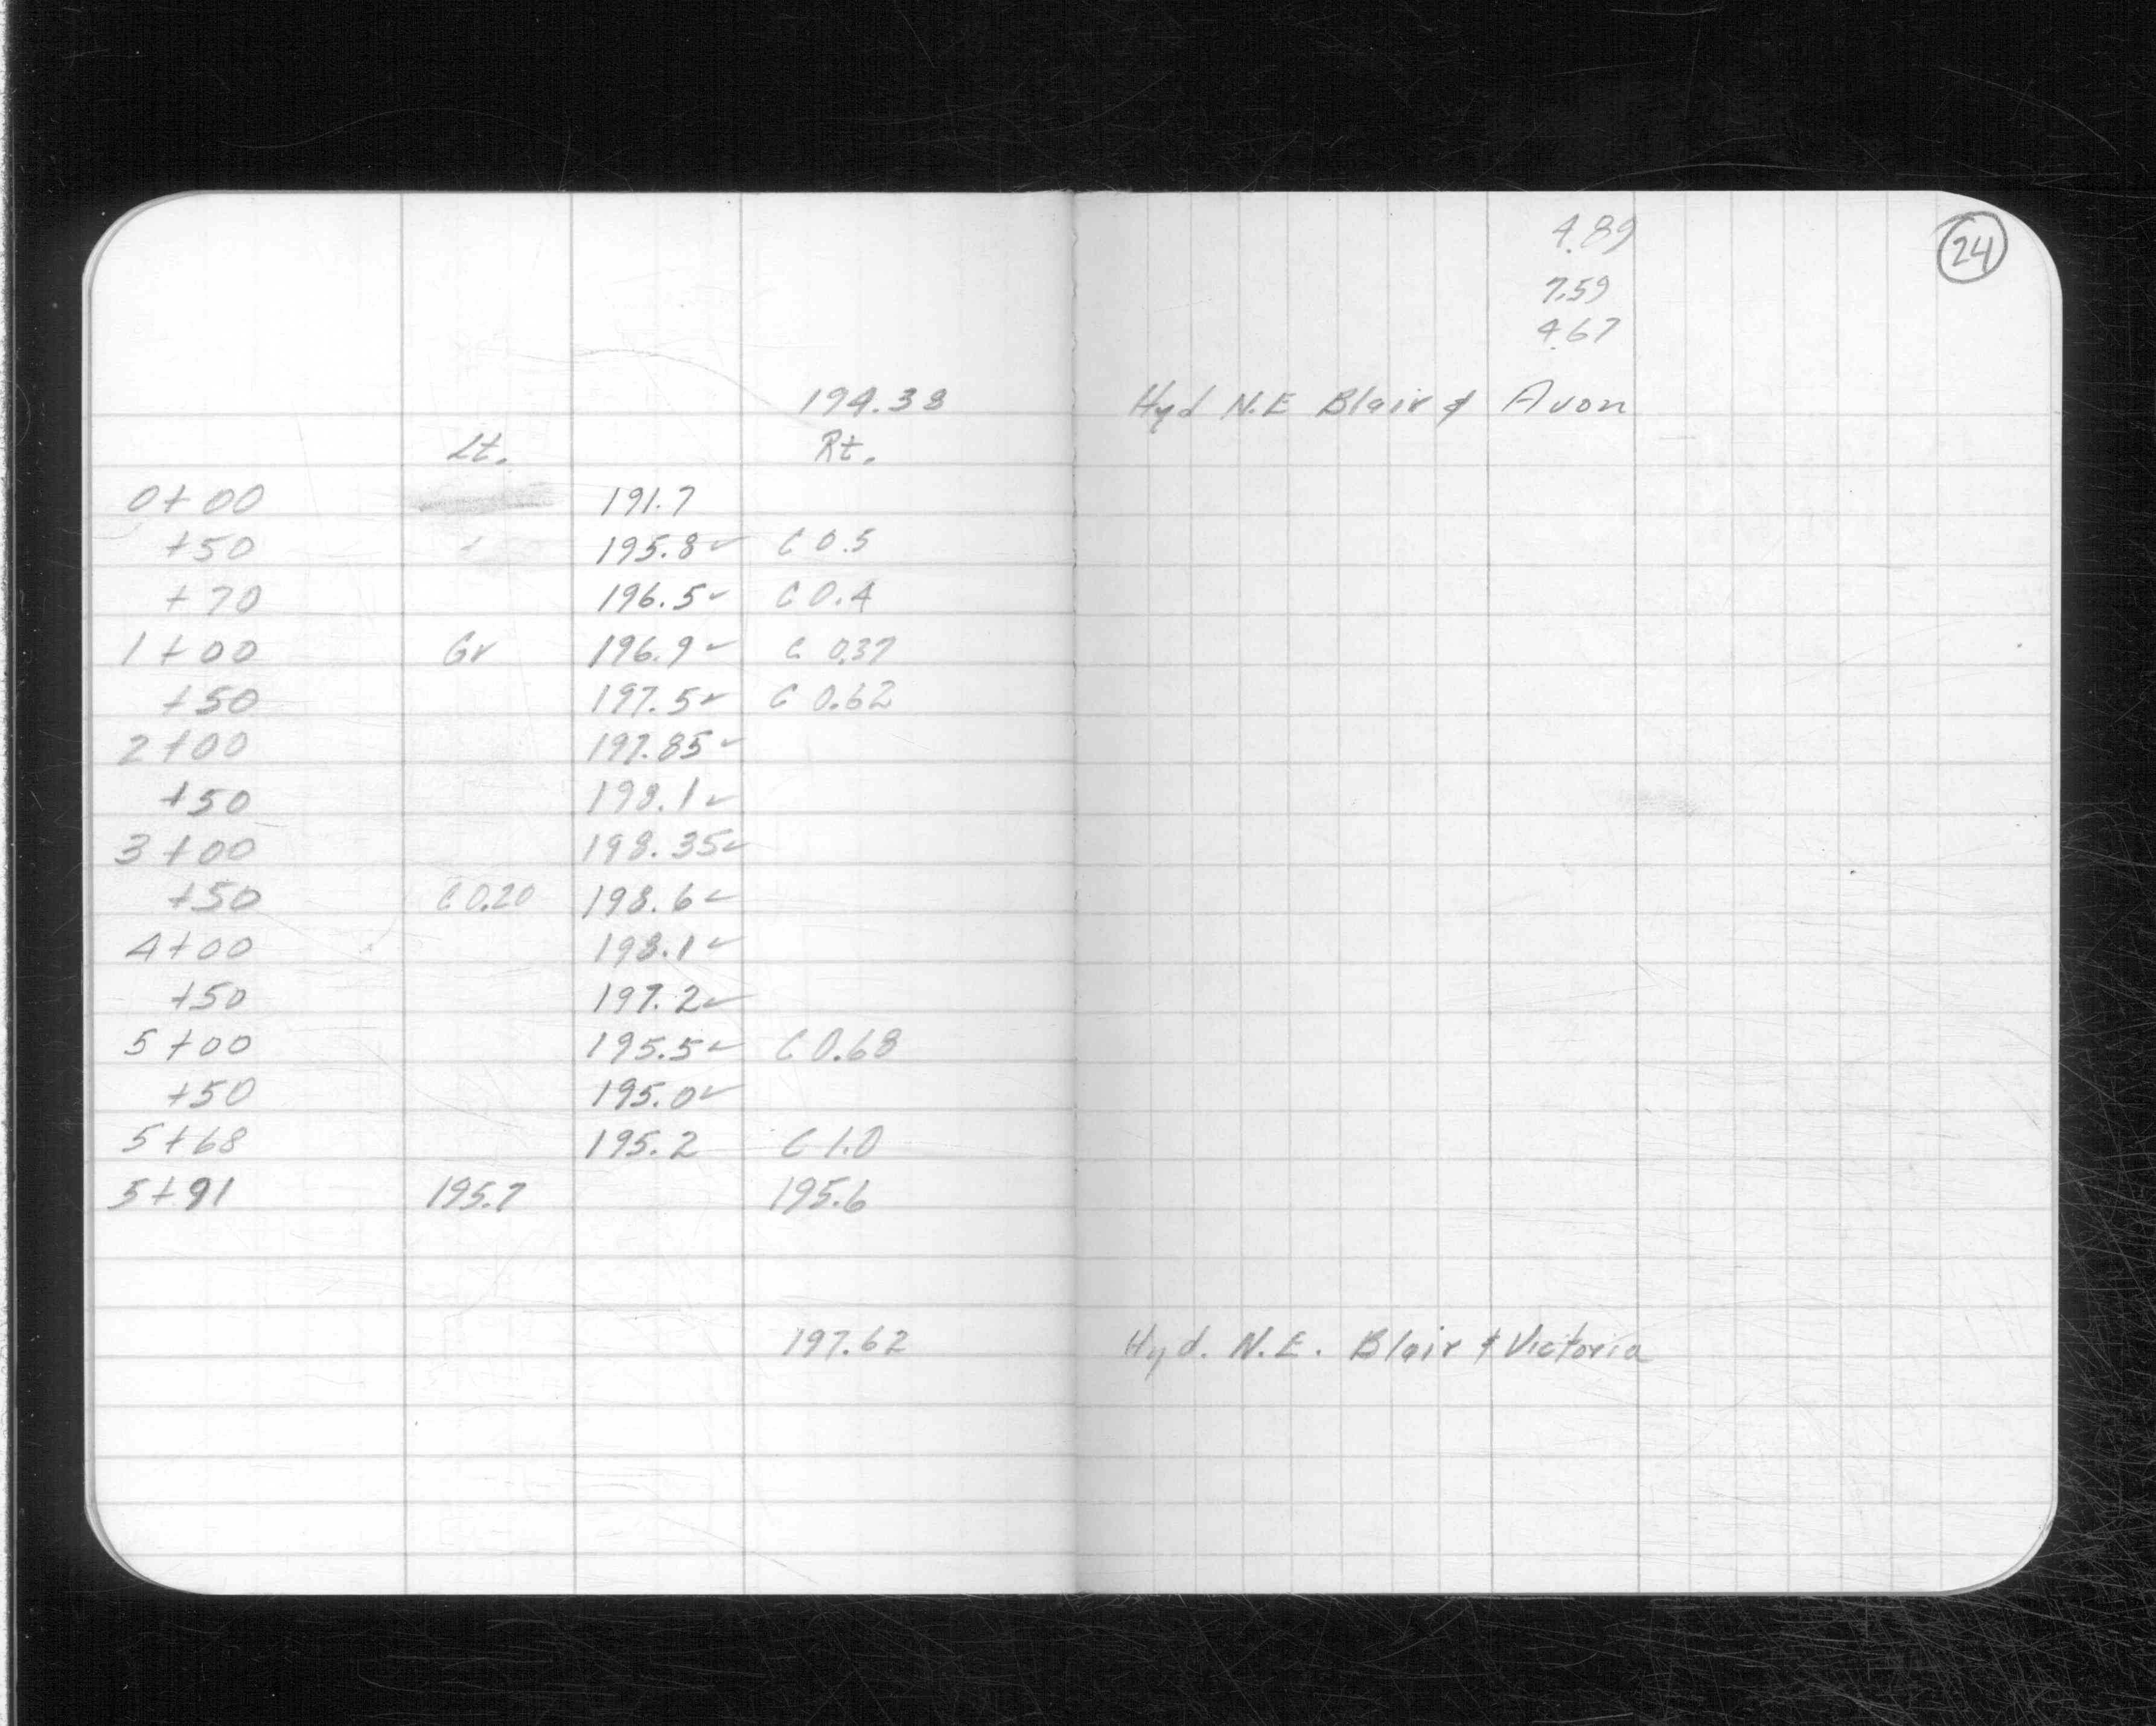 4.89
24
7.59
4.67
194.38 Hyd N.E Blair & Avon
Lt. Rt.
0+00 191.7
+50 195.8✓ C 0.5
+70 196.5✓ C 0.4
1+00 Gr 196.9✓ C 0.37
+50 197.5✓ C 0.62
2+00 197.85✓
+50 198.1✓
3+00 198.35✓
+50 C 0.20 198.6✓
4+00 198.1✓
+50 197.2✓
5+00 195.5✓ C 0.68
+50 195.0✓
5+68 195.2 C 1.0
5+91 195.7 195.6
197.62 Hyd. N.E. Blair & Victoria